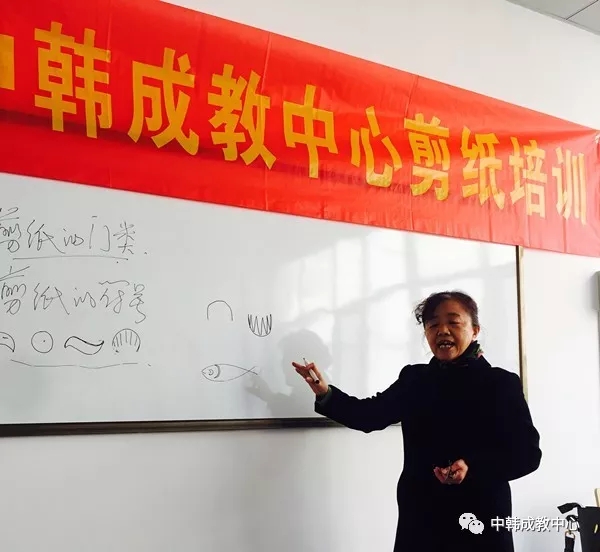 中韩成教中心剪纸培训
剪纸的门类
剪纸的符号
中韩成教中心